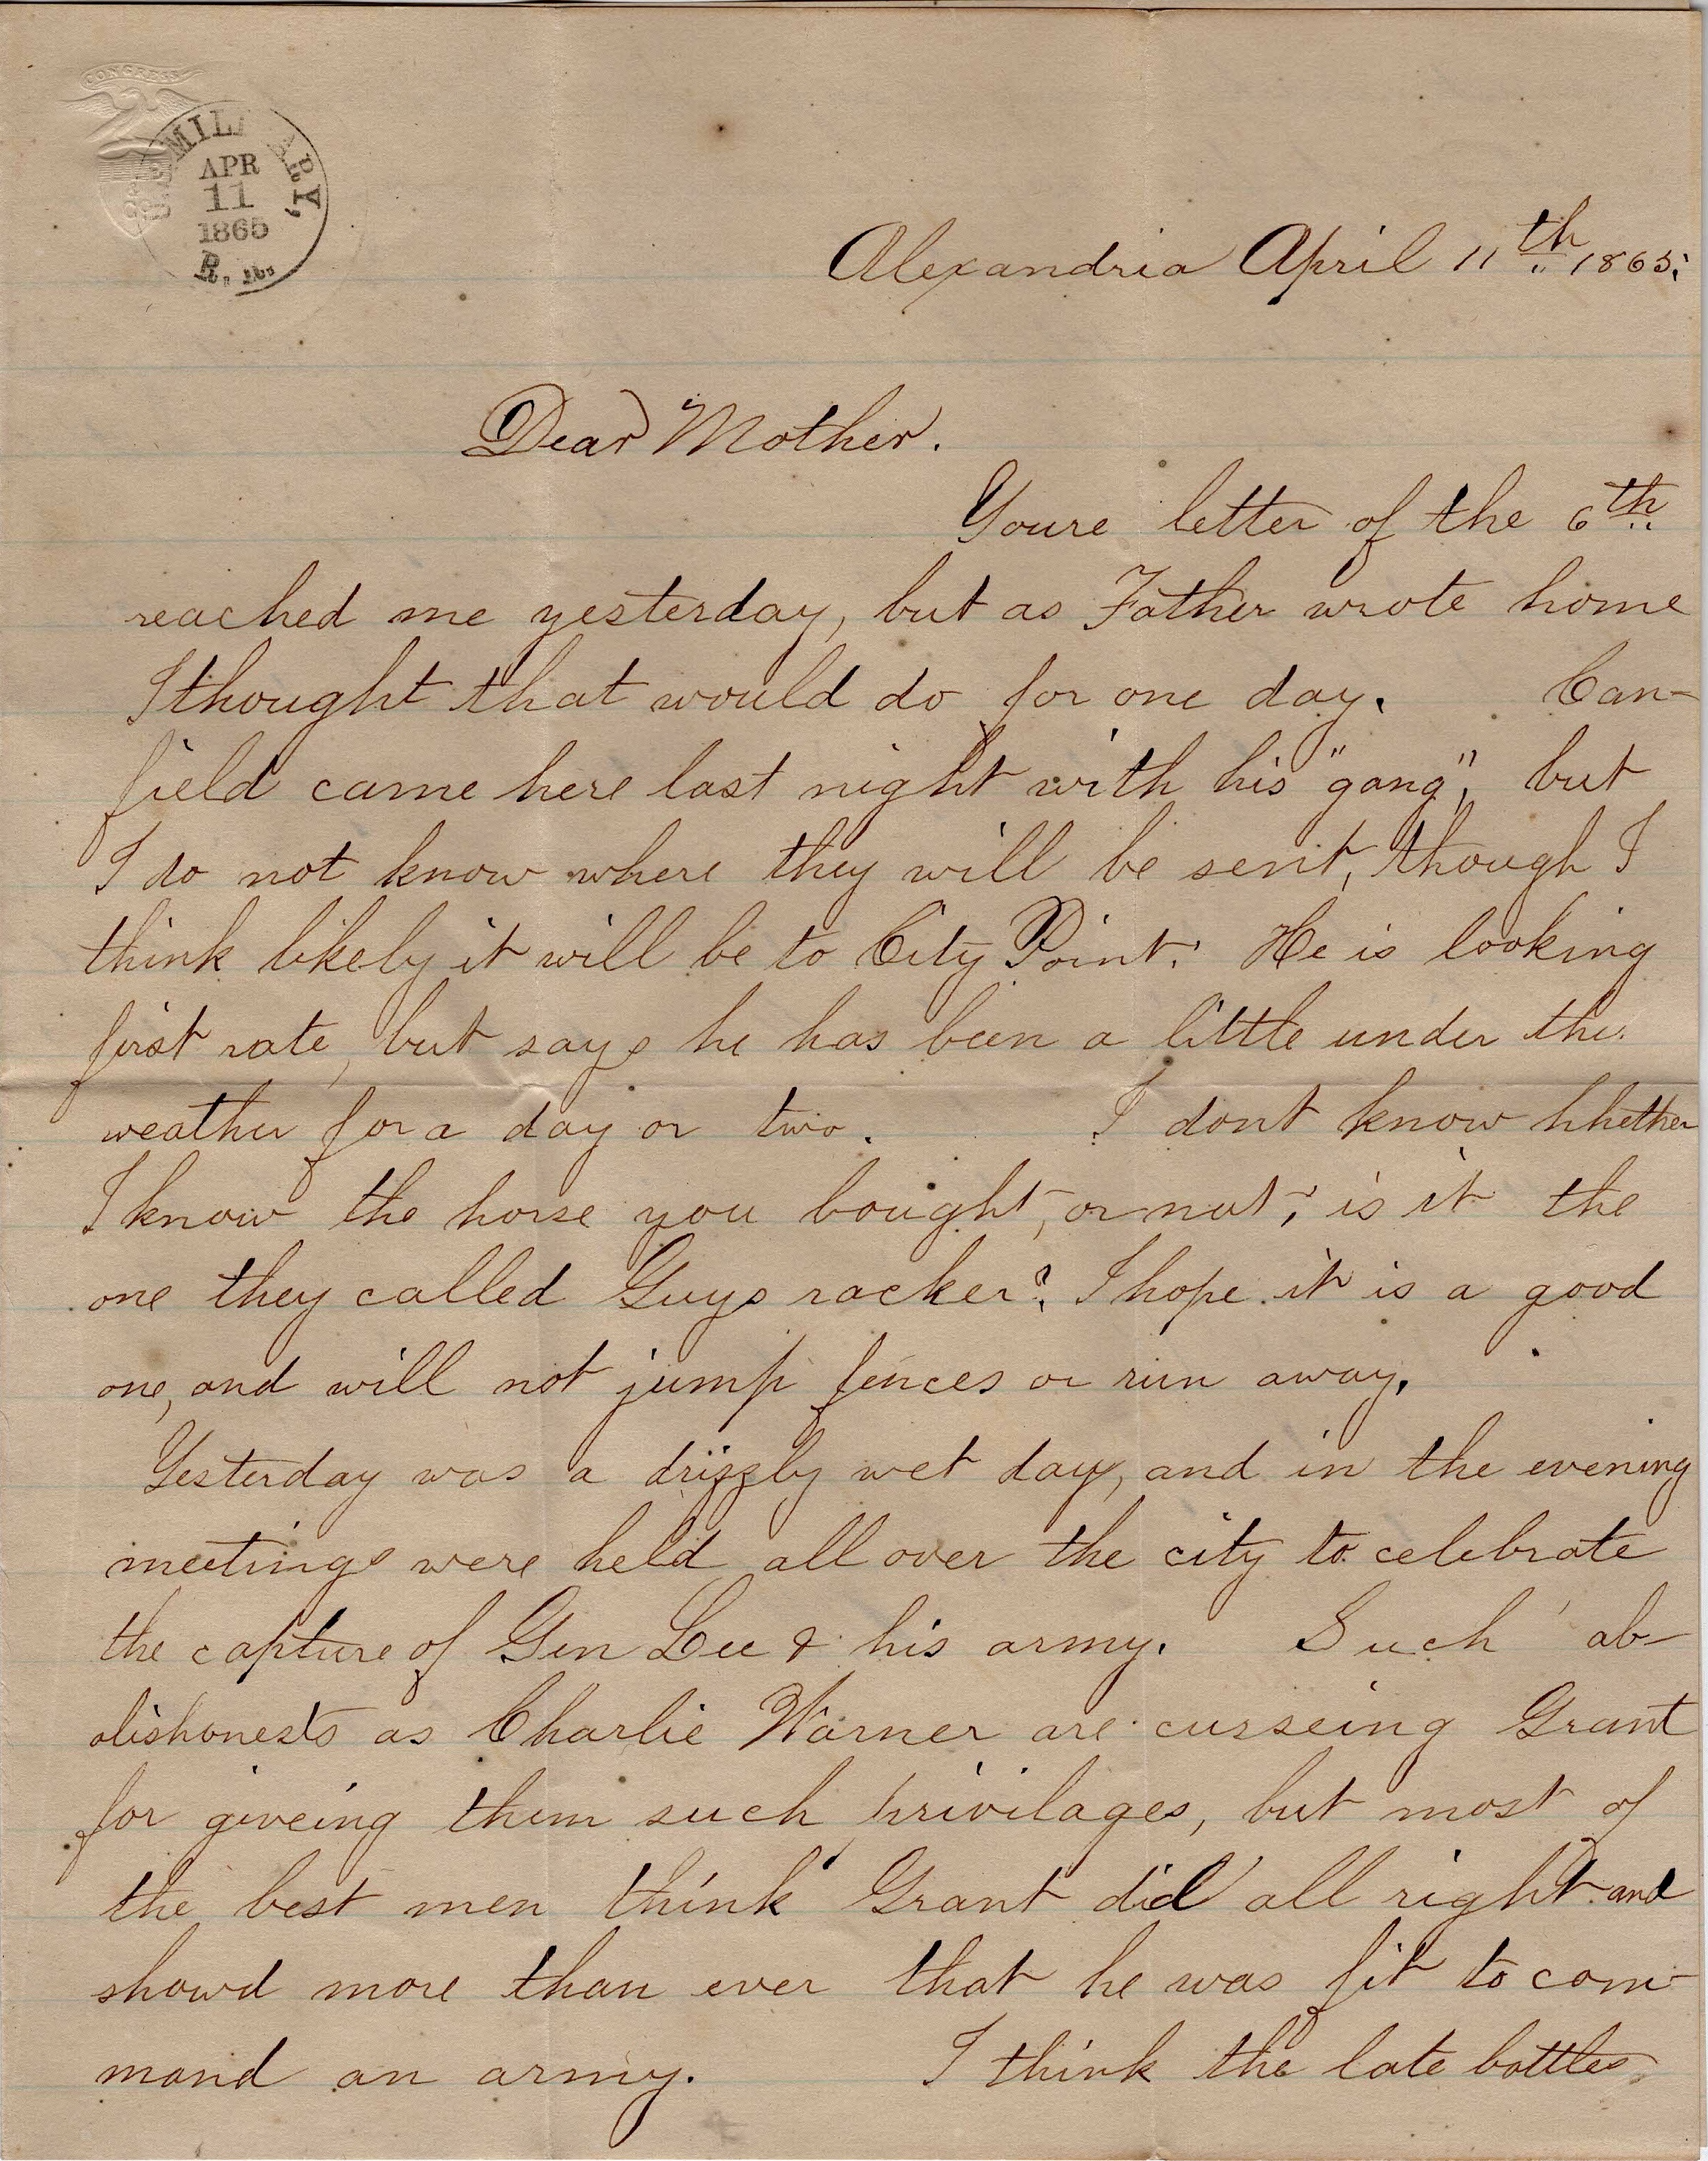 CONGRESS
U.S. MILITARY
APR
11
1865
R. R.
Alexandria April 11th 1865.
Dear Mother.
Youre letter of the 6th
reached me yesterday, but as Father wrote home
I thought that would do for one day. Can-
field came here last night with his "gang", but
I do not know where they will be sent, though I
think likely it will be to City Point. He is looking
first rate, but says he has been a little under the
weather for a day or two. I dont know whether
I know the horse you bought, or not; is it the
one they called Guys racker? I hope it is a good
one, and will not jump fences or run away.
Yesterday was a drizzly wet day, and in the evening
meetings were held all over the city to celebrate
the capture of Gen Lee & his army. Such ab-
olishonests as Charlie Warner are curseing Grant
for giveing them such privilages, but most of
the best men think Grant did all right and
showd more than ever that he was fit to com-
mand an army. I think the late battles